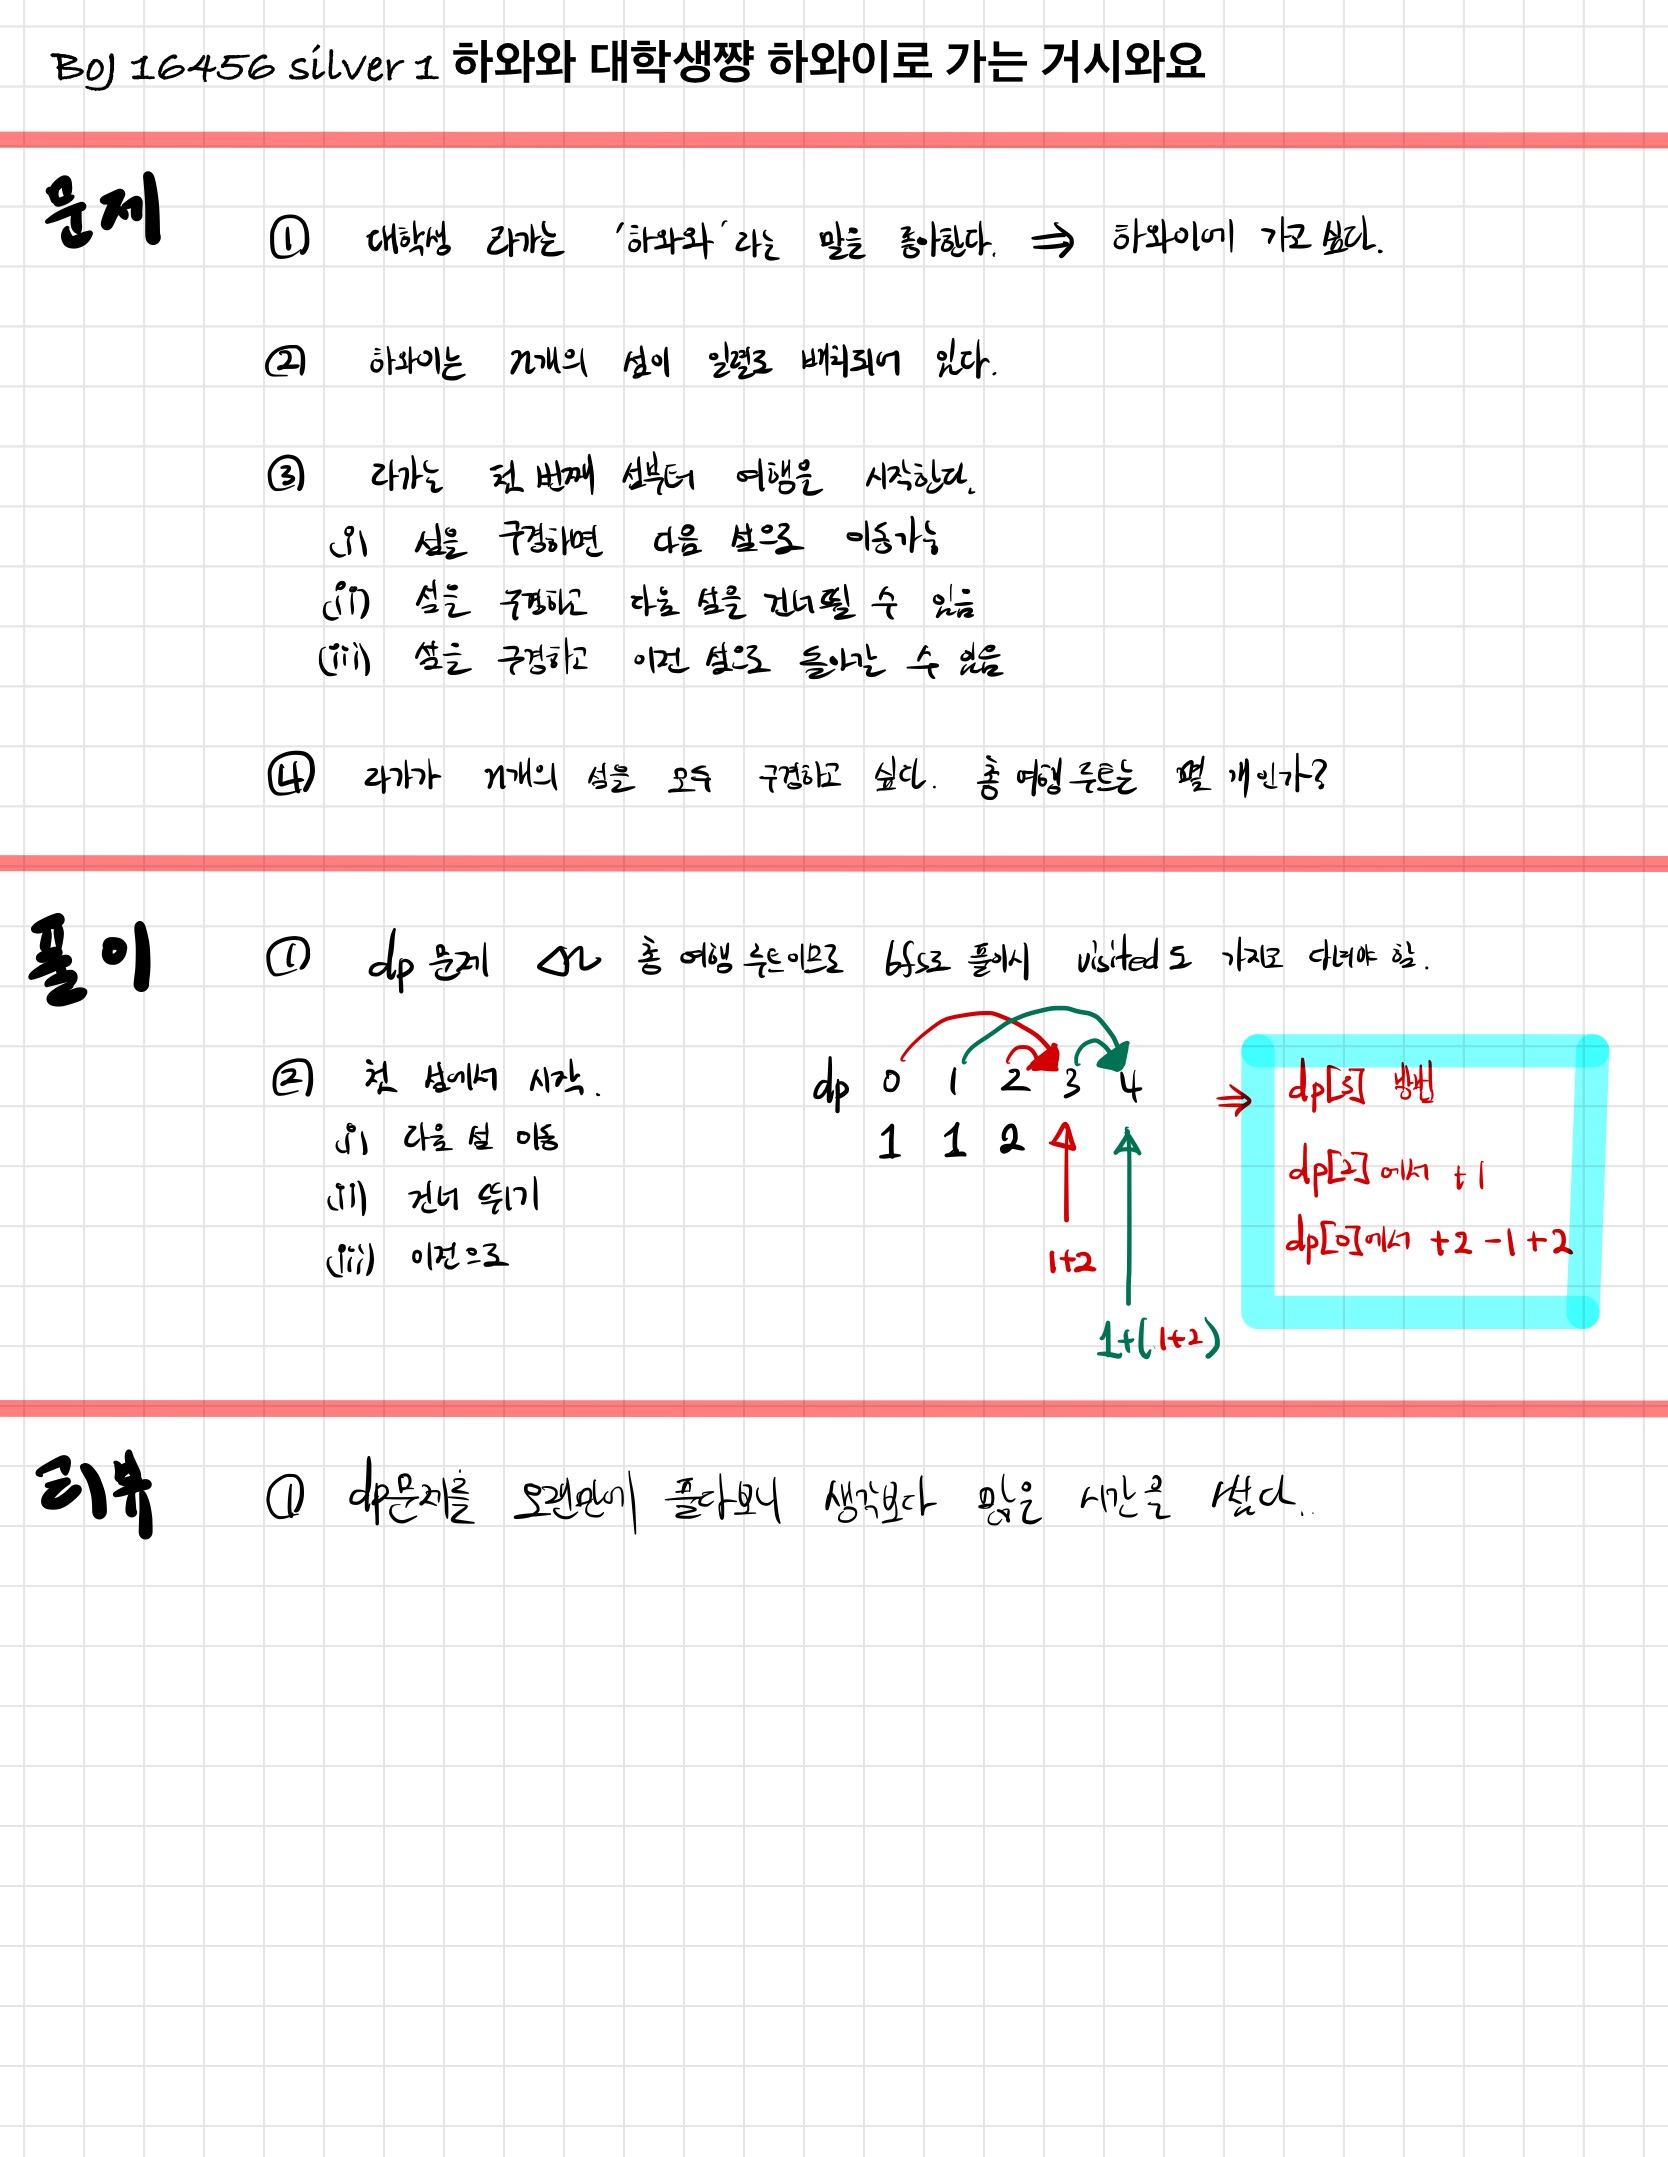 BOJ 16456 silver 1 하와와 대학생쨩 하와이로 가는 거시와요
문제
① 대학생 라가는 '하와와'라는 말을 좋아한다. ⇒ 하와이에 가고 싶다.
② 하와이는 n개의 섬이 일렬로 배치되어 있다.
③ 라가는 첫 번째 섬부터 여행을 시작한다.
(i) 섬을 구경하면 다음 섬으로 이동가능
(ii) 섬을 구경하고 다음 섬을 건너뛸 수 있음
(iii) 섬을 구경하고 이전 섬으로 돌아갈 수 있음
④ 라가가 n개의 섬을 모두 구경하고 싶다. 총 여행 루트는 몇 개인가?
풀이
① dp 문제 총 여행 루트이므로 bfs로 풀이시 visited도 가지고 다녀야 함.
② 첫 섬에서 시작.
(i) 다음 섬 이동
(ii) 건너 뛰기
(iii) 이전으로
dp 0 1 2 3 4
1 1 2
1+2
1+(1+2)
⇒ dp[3] 방법
dp[2]에서 +1
dp[0]에서 +2 -1 +2
리뷰
① dp문제를 오랜만에 풀다보니 생각보다 많은 시간을 썼다.